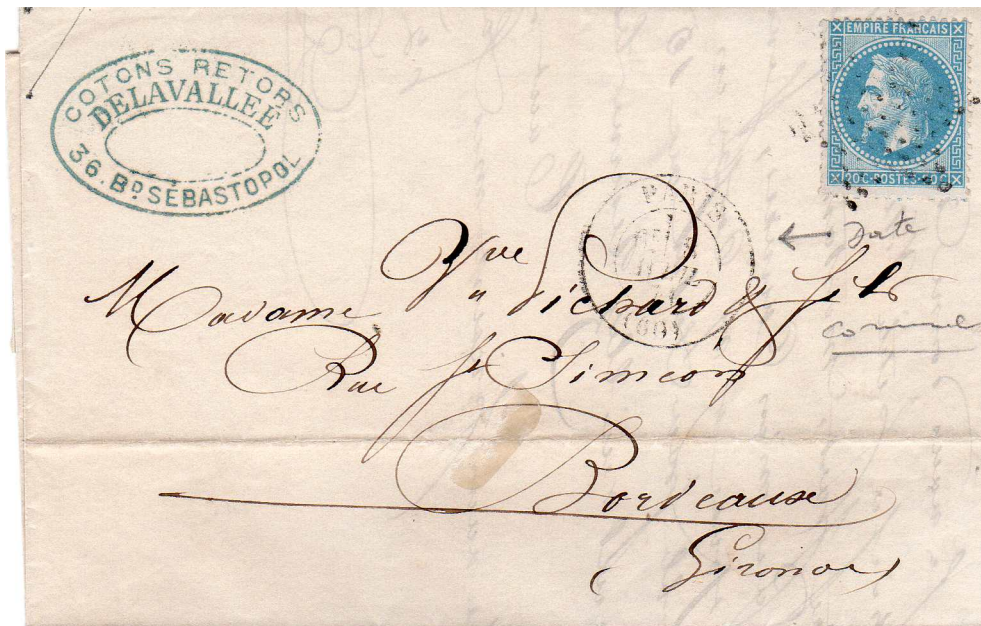 COTONS RETORS
DELAVALLÉE
36. BD. SÉBASTOPOL
EMPIRE FRANCAIS
20C POSTES 20C
PARIS
(60)
← Date
Madame Vve
Vichard & fils
Rue St Simeon
Bordeaux
(Gironde)